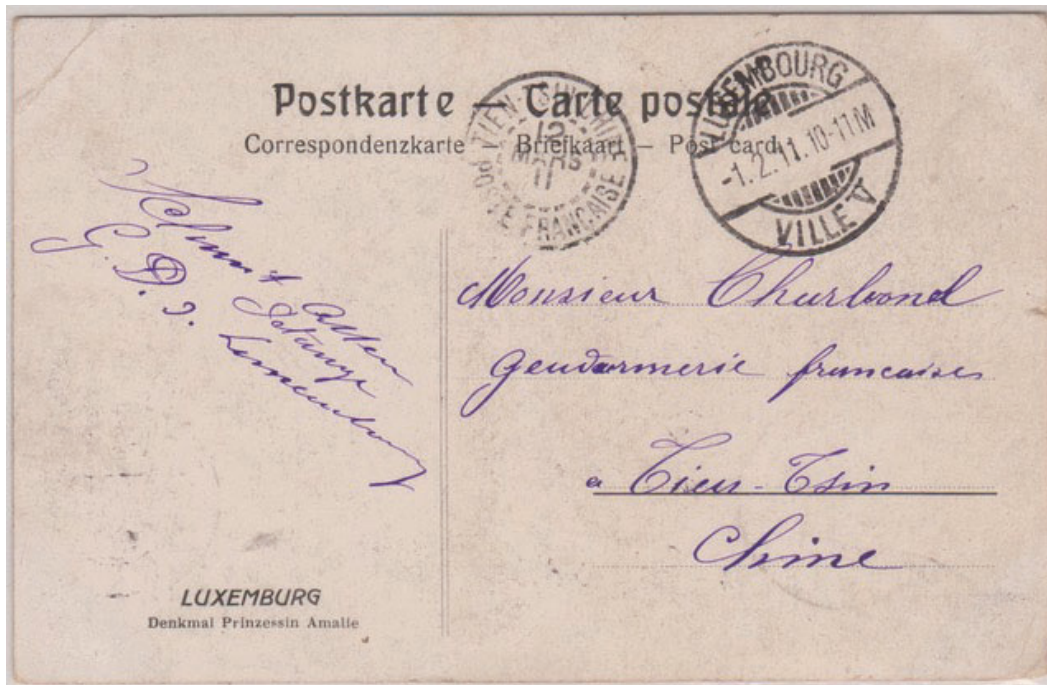 Postkarte — Carte postale
Correspondenzkarte – Briefkaart – Post card
TIEN-TSIN CHINE
12
MARS
11
POSTE FRANÇAISE
LUXEMBOURG
-1.2.11.10-11M
VILLE V
G. D. Luxembourg
Monsieur Charbond
Gendarmerie francaise
a Tien-Tsin
Chine
LUXEMBURG
Denkmal Prinzessin Amalie